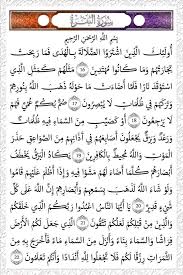 سُورَةُ البَقَرَة
بِسْمِ اللَّهِ الرَّحْمَٰنِ الرَّحِيمِ
أُولَٰئِكَ الَّذِينَ اشْتَرَوُا الضَّلَالَةَ بِالْهُدَىٰ فَمَا رَبِحَتْ
تِجَارَتُهُمْ وَمَا كَانُوا مُهْتَدِينَ 16 مَثَلُهُمْ كَمَثَلِ الَّذِي
اسْتَوْقَدَ نَارًا فَلَمَّا أَضَاءَتْ مَا حَوْلَهُ ذَهَبَ اللَّهُ بِنُورِهِمْ
وَتَرَكَهُمْ فِي ظُلُمَاتٍ لَا يُبْصِرُونَ 17 صُمٌّ بُكْمٌ عُمْيٌ فَهُمْ
لَا يَرْجِعُونَ 18 أَوْ كَصَيِّبٍ مِنَ السَّمَاءِ فِيهِ ظُلُمَاتٌ
وَرَعْدٌ وَبَرْقٌ يَجْعَلُونَ أَصَابِعَهُمْ فِي آذَانِهِمْ مِنَ الصَّوَاعِقِ حَذَرَ
الْمَوْتِ وَاللَّهُ مُحِيطٌ بِالْكَافِرِينَ 19 يَكَادُ الْبَرْقُ يَخْطَفُ
أَبْصَارَهُمْ كُلَّمَا أَضَاءَ لَهُمْ مَشَوْا فِيهِ وَإِذَا أَظْلَمَ عَلَيْهِمْ قَامُوا
وَلَوْ شَاءَ اللَّهُ لَذَهَبَ بِسَمْعِهِمْ وَأَبْصَارِهِمْ إِنَّ اللَّهَ عَلَىٰ كُلِّ
شَيْءٍ قَدِيرٌ 20 يَا أَيُّهَا النَّاسُ اعْبُدُوا رَبَّكُمُ الَّذِي خَلَقَكُمْ
وَالَّذِينَ مِنْ قَبْلِكُمْ لَعَلَّكُمْ تَتَّقُونَ 21 الَّذِي جَعَلَ لَكُمُ الْأَرْضَ
فِرَاشًا وَالسَّمَاءَ بِنَاءً وَأَنْزَلَ مِنَ السَّمَاءِ مَاءً فَأَخْرَجَ بِهِ مِنَ
الثَّمَرَاتِ رِزْقًا لَكُمْ فَلَا تَجْعَلُوا لِلَّهِ أَنْدَادًا وَأَنْتُمْ تَعْلَمُونَ 22